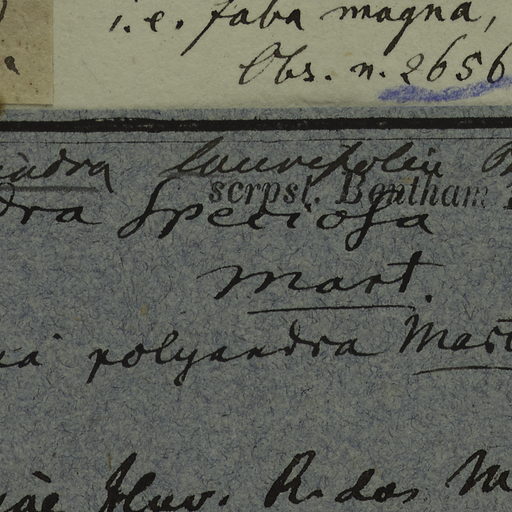 i.e. faba magna,
Obs. n. 2656
andra laurifolia
scrpsl. Bentham
dra Speciosa
Mart.
polyandra Mart
Fluv. R. das M